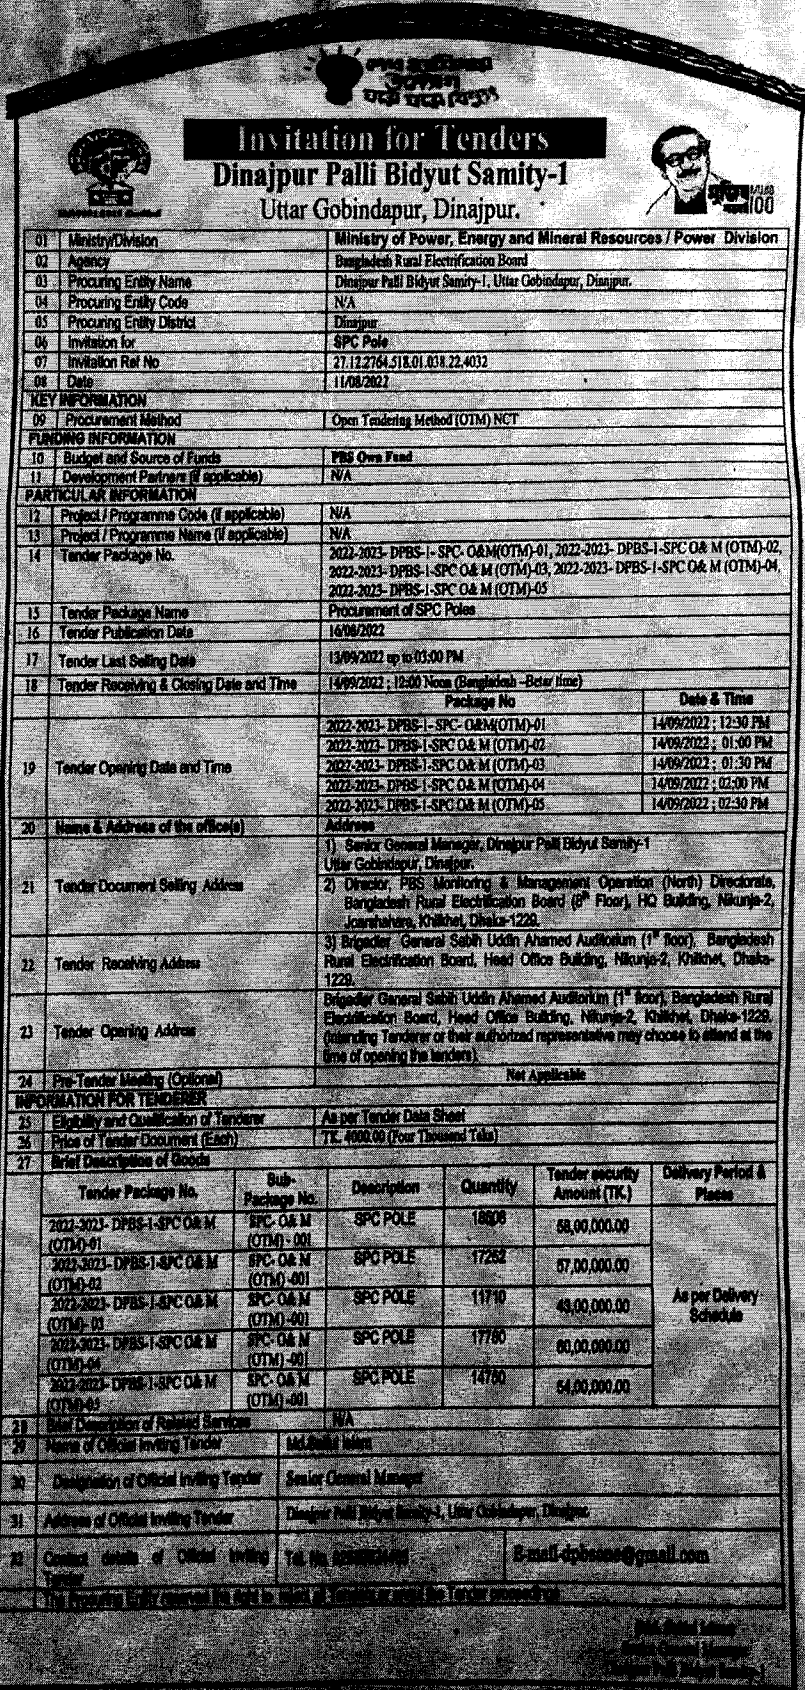 ঘরে ঘরে বিদ্যুৎ
Invitation for Tenders
Dinajpur Palli Bidyut Samity-1
Uttar Gobindapur, Dinajpur.
100
01 Ministry/Division Ministry of Power, Energy and Mineral Resources / Power Division
02 Agency Bangladesh Rural Electrification Board
03 Procuring Entity Name Dinajpur Palli Bidyut Samity-1, Uttar Gobindapur, Dinajpur.
04 Procuring Entity Code N/A
05 Procuring Entity District Dinajpur
06 Invitation for SPC Pole
07 Invitation Ref No 27.12.2764.518.01.038.22.4032
08 Date 11/08/2022
KEY INFORMATION
09 Procurement Method Open Tendering Method (OTM) NCT
FUNDING INFORMATION
10 Budget and Source of Funds PBS Own Fund
11 Development Partners (if applicable) N/A
PARTICULAR INFORMATION
12 Project / Programme Code (if applicable) N/A
13 Project / Programme Name (if applicable) N/A
14 Tender Package No. 2022-2023- DPBS-1- SPC- O&M(OTM)-01, 2022-2023- DPBS-1-SPC O& M (OTM)-02,
2022-2023- DPBS-1-SPC O& M (OTM)-03, 2022-2023- DPBS-1-SPC O& M (OTM)-04,
2022-2023- DPBS-1-SPC O& M (OTM)-05
15 Tender Package Name Procurement of SPC Poles
16 Tender Publication Date 16/08/2022
17 Tender Last Selling Date 13/09/2022 up to 03:00 PM
18 Tender Receiving & Closing Date and Time 14/09/2022 ; 12:00 Noon (Bangladesh –Betar time)
Package No Date & Time
2022-2023- DPBS-1- SPC- O&M(OTM)-01 14/09/2022 ; 12:30 PM
2022-2023- DPBS-1-SPC O& M (OTM)-02 14/09/2022 ; 01:00 PM
19 Tender Opening Date and Time 2022-2023- DPBS-1-SPC O& M (OTM)-03 14/09/2022 ; 01:30 PM
2022-2023- DPBS-1-SPC O& M (OTM)-04 14/09/2022 ; 02:00 PM
2022-2023- DPBS-1-SPC O& M (OTM)-05 14/09/2022 ; 02:30 PM
20 Name & Address of the office(s) Address
1) Senior General Manager, Dinajpur Palli Bidyut Samity-1
Uttar Gobindapur, Dinajpur.
21 Tender Document Selling Address 2) Director, PBS Monitoring & Management Operation (North) Directorate,
Bangladesh Rural Electrification Board (8th Floor), HQ Building, Nikunja-2,
Joarshahara, Khilkhet, Dhaka-1229.
22 Tender Receiving Address 3) Brigadier General Sabih Uddin Ahamed Auditorium (1st floor), Bangladesh
Rural Electrification Board, Head Office Building, Nikunja-2, Khilkhet, Dhaka-
1229.
23 Tender Opening Address Brigadier General Sabih Uddin Ahamed Auditorium (1st floor), Bangladesh Rural
Electrification Board, Head Office Building, Nikunja-2, Khilkhet, Dhaka-1229.
(Intending Tenderer or their authorized representative may choose to attend at the
time of opening the tenders).
24 Pre-Tender Meeting (Optional) Not Applicable
INFORMATION FOR TENDERER
25 Eligibility and Qualification of Tenderer As per Tender Data Sheet
26 Price of Tender Document (Each) TK. 4000.00 (Four Thousand Taka)
27 Brief Description of Goods
Tender Package No. Sub-Package No. Description Quantity Tender security Amount (TK.) Delivery Period & Places
2022-2023- DPBS-1-SPC O& M (OTM)-01 SPC- O& M (OTM) - 001 SPC POLE 58,00,000.00
2022-2023- DPBS-1-SPC O& M (OTM)-02 SPC- O& M (OTM) -001 SPC POLE 17252 57,00,000.00
2022-2023- DPBS-1-SPC O& M (OTM)- 03 SPC- O& M (OTM) -001 SPC POLE 11710 43,00,000.00 As per Delivery Schedule
2022-2023- DPBS-1-SPC O& M (OTM)-04 SPC- O& M (OTM) -001 SPC POLE 17780 60,00,000.00
2022-2023- DPBS-1-SPC O& M (OTM)-05 SPC- O& M (OTM) -001 SPC POLE 14750 54,00,000.00
28 Brief Description of Related Services N/A
29 Name of Official Inviting Tender Islam
30 Designation of Official Inviting Tender Senior General Manager
31 Address of Official Inviting Tender Dinajpur Palli Bidyut Samity-1, Uttar Gobindapur, Dinajpur.
32 Contact details of Official Inviting Tel. No. E-mail-dpbsone@gmail.com
Tender
The Procuring Entity reserves the right to reject all Tenders or annul the Tender proceedings
Senior General Manager
Dinajpur Palli Bidyut Samity-1